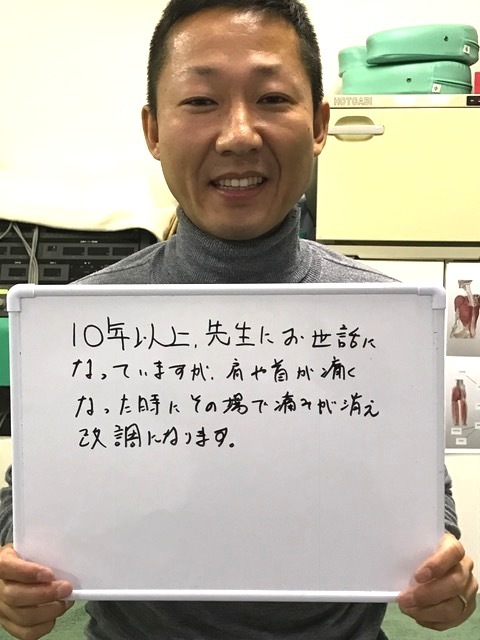 HOTCABI
10年以上、先生にお世話に
なっていますが、肩や首が痛く
なった時にその場で痛みが消え
改調になります。